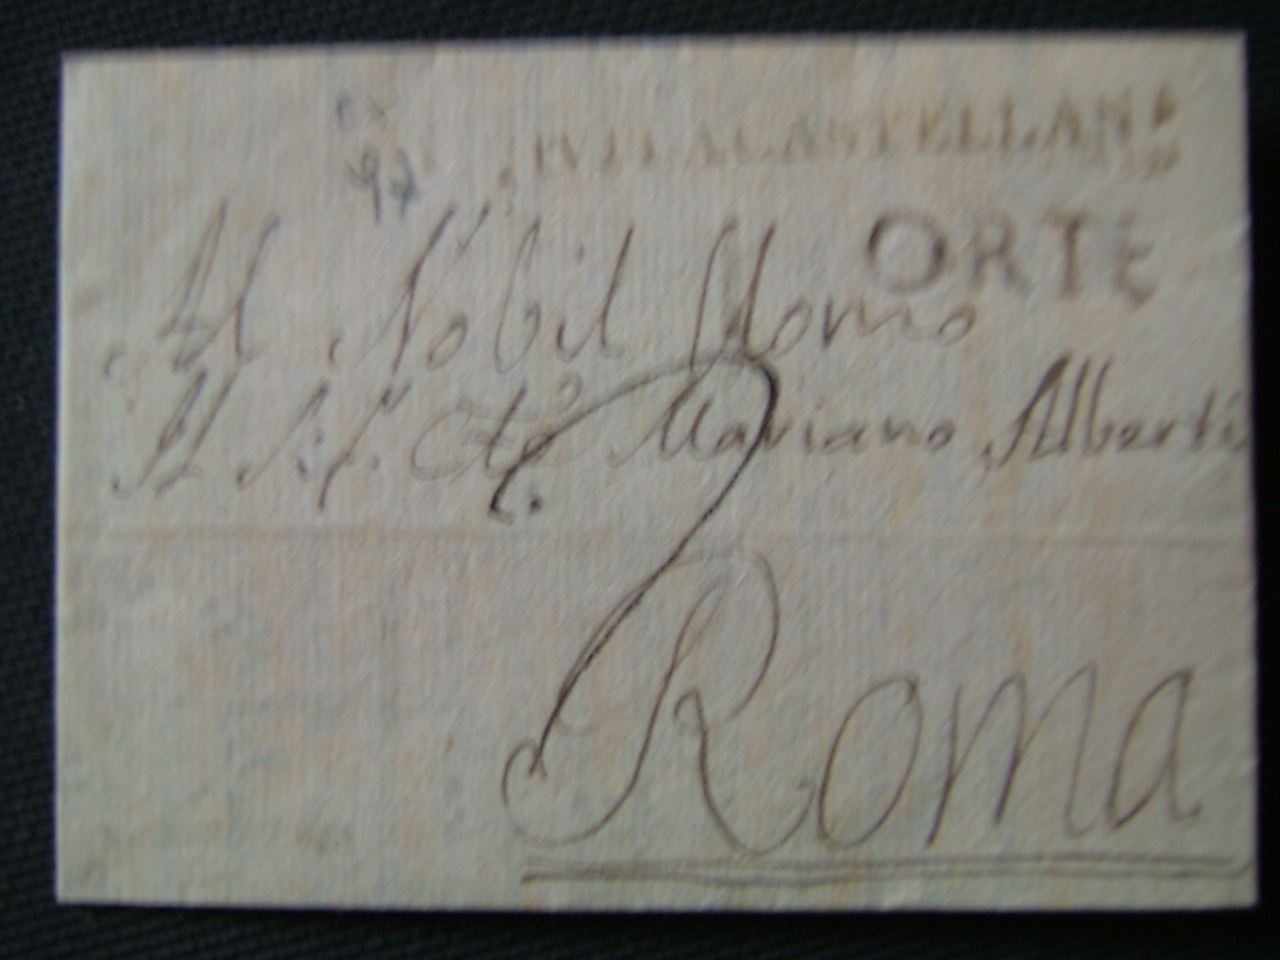 97
IVITACASTELLANA
ORTE
Al Nobil Uomo
Il Sig. Cte Mariano Alberti
Roma